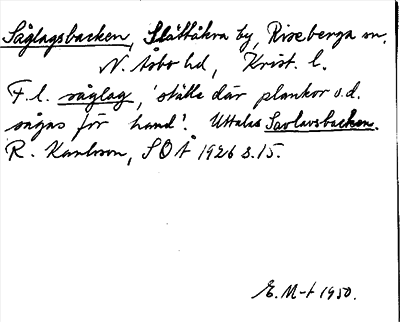 Såglagsbacken, Slättåkra by, Riseberga sn,
N. Åsbo hd, Krist. l.
F. l. såglag, 'ställe där plankor o.d.
sågas för hand'. Uttalas Savlavsbacken.
R. Karlsson, SOÅ 1926 s. 15.
E. M-t 1950.